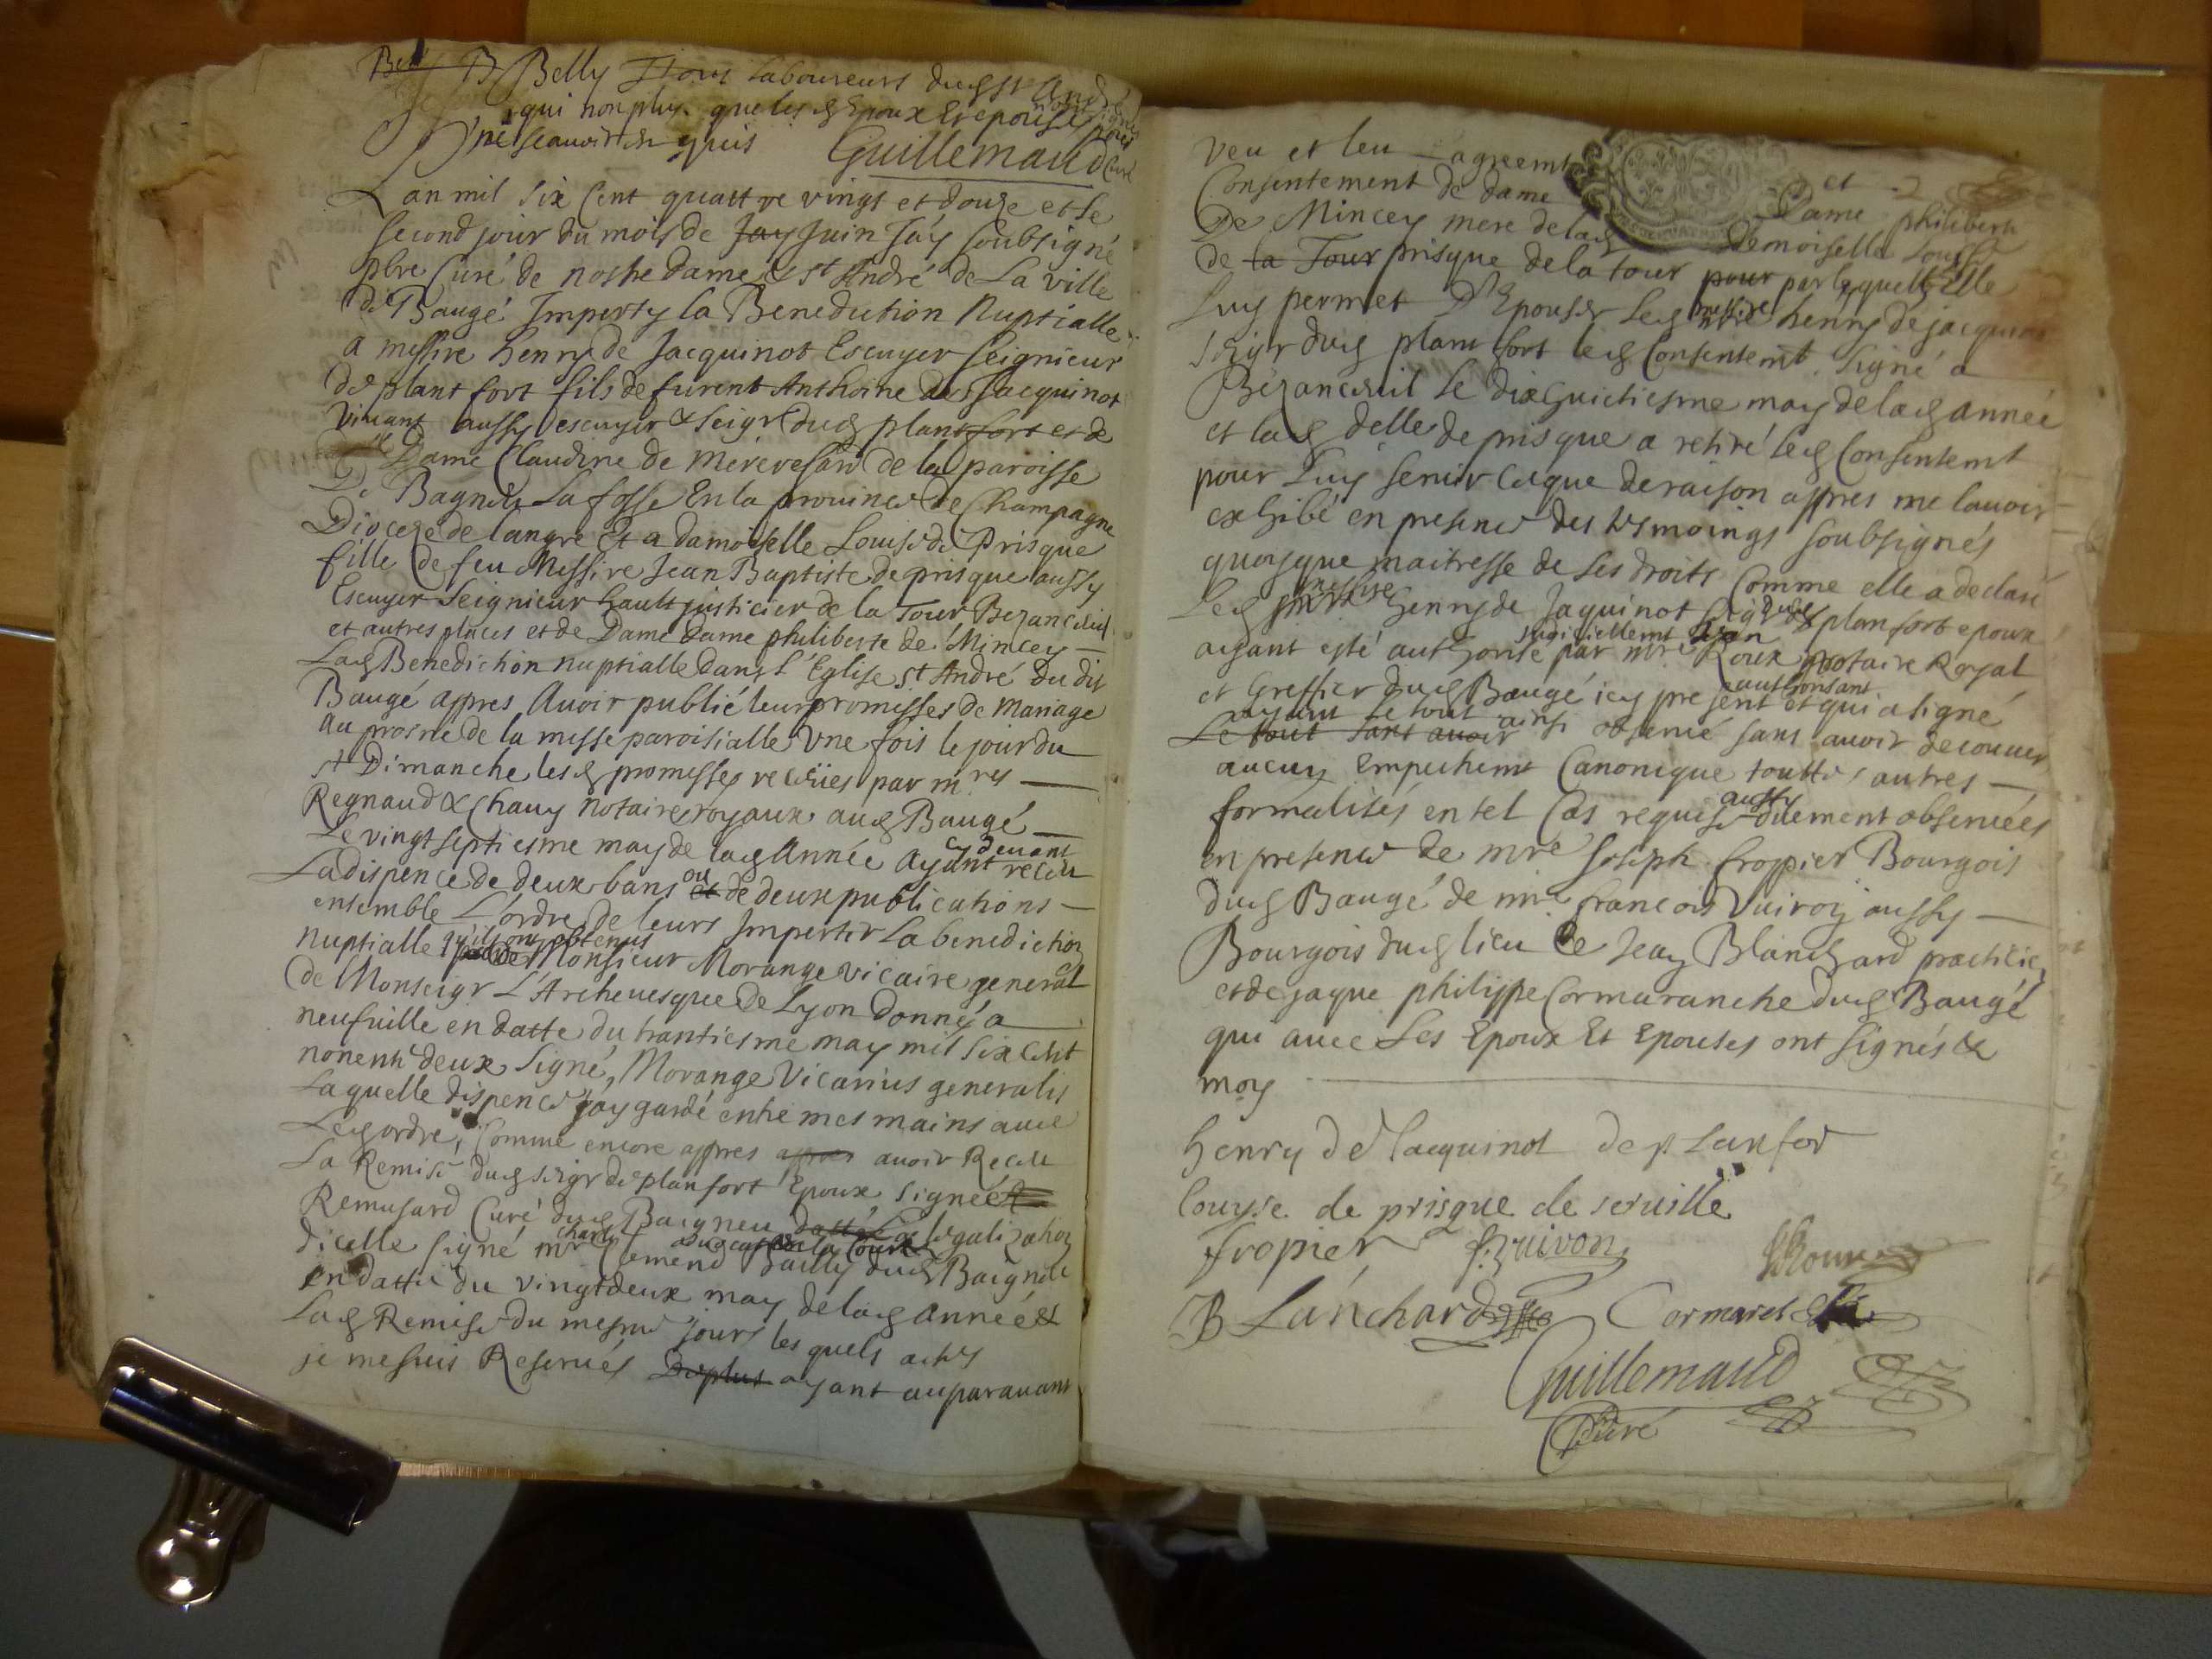 B Belly Tous laboureurs dud st André
qui non plus que lesd Epoux Et epouse
ne scauoir
Guillemaud Curé
L an mil six Cent quattre vings et douze et le
second jour du mois de Jay Juin J'ay soubsigné
pbre Curé de nostre dame & st André de La ville
de Baugé Imperty la Benediction Nuptialle
a messire henry de Jacquinot Escuyer Seignieur
de plant fort fils de furent Anthoine de Jacquinot
Viuant aussy escuyer & Seigr dud plantfort et de
Dame Claudine de de la paroisse
De La fosse En la prouince de Champagne
Dioceze de langre Et a damoiselle Louise de Prisque
fille de feu Messire Jean Baptiste de prisque aussy
Escuyer Seignieur hault justicier de la Tour Bezanceuil
et autres places et de Dame Dame philiberte de Mincey
Lad Benediction nuptialle dans L'Eglise st André du dit
Baugé appres Auoir publié leur promisses de Mariage
au prosne de la messe paroisialle Vne fois le jour du
st Dimanche lesd promesses receües par m.res
Regnaud & Chauy Notaires royaux aud Baugé
Le vingt septiesme may de lad Année Ayant cy deuant receu
La dispence de deux bans ou et de deux publications
ensemble L'ordre de leurs Impertir La benediction
nuptialle qu'ils ont obtenus de Monsieur Morange vicaire general
de Monseigr L'Archeuesque de Lyon Donné a
neufuille en datte du trantiesme may mil six cent
nonente deux Signé, Morange Vicarius generalis
Laquelle dispence jay gardé entre mes mains auec
Led ordre, Comme encore appres appres auoir Receu
La Remise dud seigr de planfort Epoux signée
Remusard Curé dud Baigneu datté La legalization
dicelle signé mre Charle Clemend Bailly dud Baigneu
en datte du vingtdeux may de lad année &
Lad Remise du mesme jours les quels actes
je me suis Reserués De plus ayant auparauant
veu et leu agreemt et
Consentement de dame Dame philiberte
De Mincey mere de lad Demoiselle Louise
de la Tour prisque de la tour pour par lequell Elle
Luy permet D'Epouser Led messire henry de jacquinot
seigr dud plant fort led Consentemt signé a
Bezanceuil le dixhuictiesme may de lad année
et lad delle de prisque a retiré led Consentemt
pour Luy seruir ce que de raison appres me lauoir
exhibé en presence des tesmoings soubsignés
quoyque maitresse de ses droits Comme elle a declaré
Led messire henry de Jaquinot seigr dud planfort epoux
ayant esté authorisé judiciellemt par mre Jean Roux notaire Royal
et Greffier dud Baugé icy present authorisant et qui a signé
Le tout sans auoir ayant le tout ainsi obserué sans auoir decouuer
aucun Empechemt Canonique touttes autres
formalités en tel Cas requise aussy duement obseruées
en presence de mre Joseph fropier Bourgois
dud Baugé de mre francois Vuiroy aussy
Bourgois dud lieu de Jean Blanchard practicien
et de jaque philippe Cormaranche dud Baugé
qui auec Les Epoux Et Epouses ont signés &
moy
henry de Jacquinot de planfor
Louyse de prisque de seruille
fropier
B Lanchard
Guillemaud
Curé